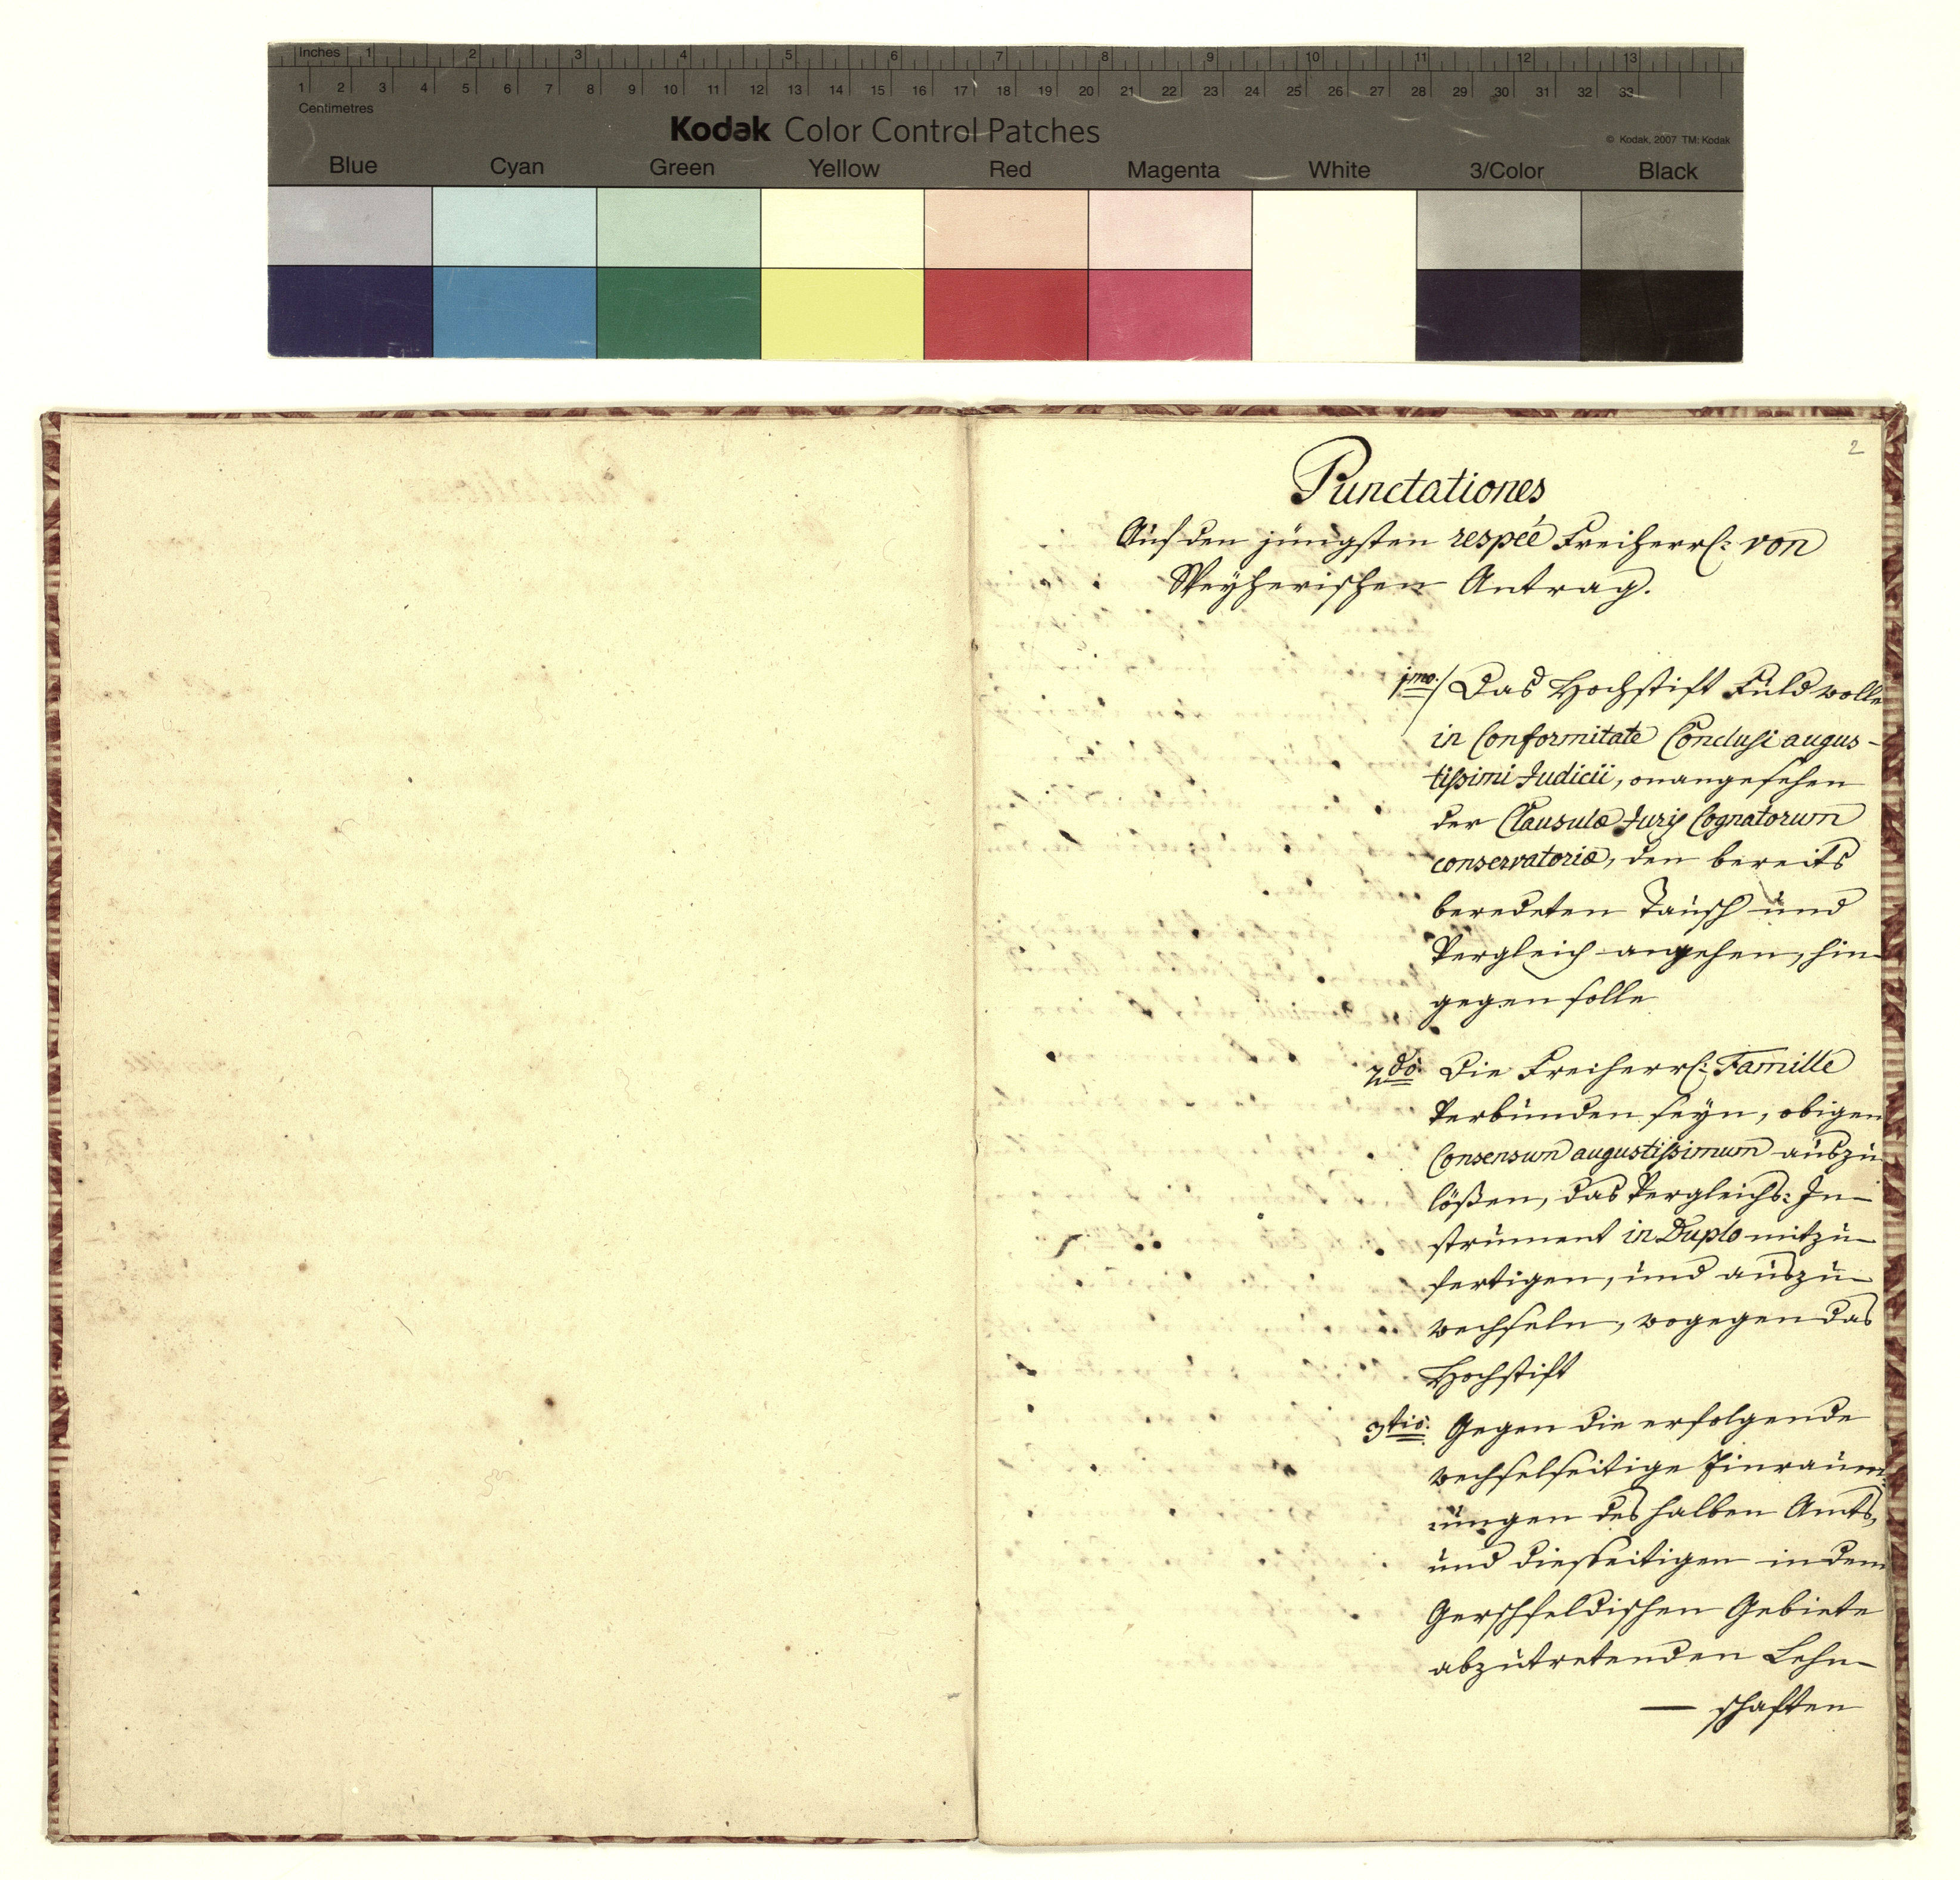 Inches 1 2 3 4 5 6 7 8 9 10 11 12 13
1 2 3 4 5 6 7 8 9 10 11 12 13 14 15 16 17 18 19 20 21 22 23 24 25 26 27 28 29 30 31 32 33
Centimetres
Kodak Color Control Patches
© Kodak, 2007 TM: Kodak
Blue Cyan Green Yellow Red Magenta White 3/Color Black
2
Punctationes
Auf den jüngsten respeé Freiherrl: von
Weyherischen Antrag.
1mo./ Das Hochstift Fuld wolle
in Conformitate Conclusi augus-
tissimi Judicii, onangesehen
der Clausulæ Juris Cognatorum
conservatoriæ, den bereits
beredeten Tausch und
Vergleich angehen, hin-
gegen solle
2do. Die Freiherrl: Famille
Verbunden seyn, obigen
Consensum augustissimum auszu
lößen, das Vergleichs: In-
strument in Duplo mitzu-
fertigen, und auszu-
wechseln, wogegen das
Hochstift
3tio. Gegen die erfolgende
wechselseitige Einraum-
ungen des halben Amts,
und diesseitigen in dem
Gerschfeldischen Gebiete
abzutretenden Lehn-
— schaften